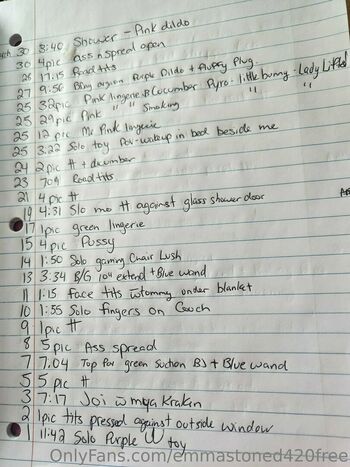 30 3:40 Shower - Pink dildo
30 4pic ass n spread open
28 17:15 Road tits
27 9:56 Purple Dildo + Plug
25 32pic Pink lingerie & Cucumber Pyro - little bunny - Lady
25 29pic Pink " " Smoking " "
25 12pic Pink lingerie
25 3:22 Solo toy Pov - wakeup in bed beside me
24 2pic tt +
23 7:09 Road tits
21 4pic tt
19 4:31 Slo mo tt against glass shower door
17 1pic green lingerie
15 4pic Pussy
14 1:50 Solo gaming Chair Lush
13 3:34 B/G 10" extend + Blue wand
11 1:15 Face tits tummy under blanket
10 1:55 Solo fingers on Couch
9 1pic tt
8 5pic Ass spread
7 7:04 Top for green Suction BJ + Blue wand
5 5pic tt
3 7:17 Joi w mya Krakin
2 1pic tits pressed against outside window
1 11:42 Solo Purple toy
OnlyFans.com/emmastoned420free